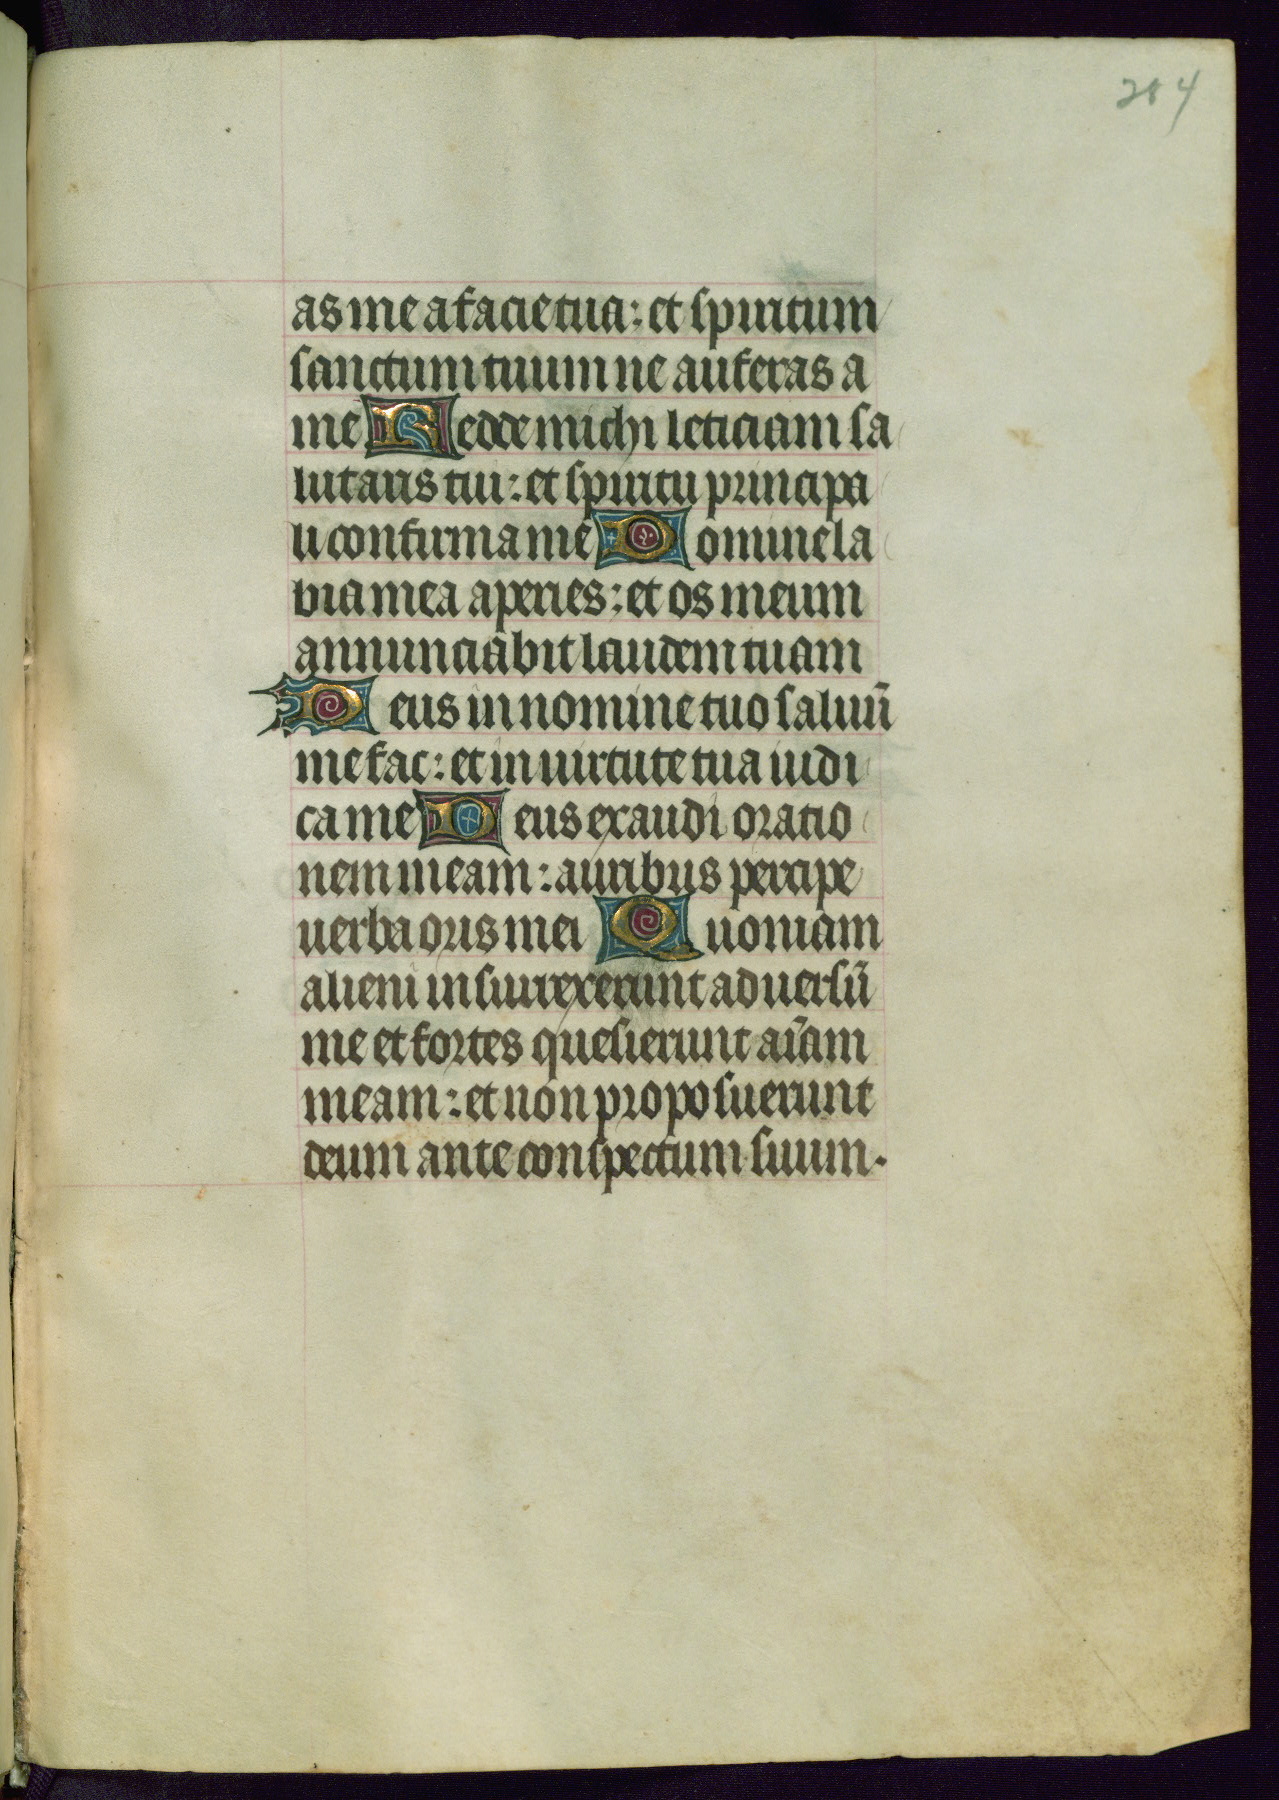 284
as me a facie tua: et spiritum
sanctum tuum ne auferas a
me Redde michi leticiam sa
lutaris tui: et spiritu principa
li confirma me Domine la
bia mea aperies: et os meum
annunciabit laudem tuam
Deus in nomine tuo saluū
me fac: et in uirtute tua iudi
ca me Deus exaudi oratio
nem meam: auribus percipe
uerba oris mei Quoniam
alieni insurrexerunt aduersū
me et fortes quesierunt aīam
meam: et non proposuerunt
deum ante conspectum suum.